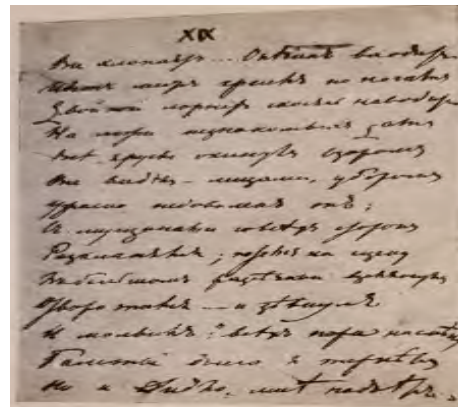 XIX
Все хлопаетъ... Онѣгинъ входитъ
Идетъ межъ креселъ по ногамъ
Двойной лорнетъ скосясь наводитъ
На ложи незнакомыхъ дамъ
Всѣ ярусы окинулъ взоромъ
Все видѣлъ — лицами, уборомъ
Ужасно недоволенъ онъ;
Съ мущинами со всѣхъ сторонъ
Раскланялся; на сцену
Въ большомъ взглянулъ
— и зѣвнулъ
И молвилъ: "всѣхъ пора на смѣну
Балеты долго я терпѣлъ
Но и Дидло, мнѣ надоѣлъ.